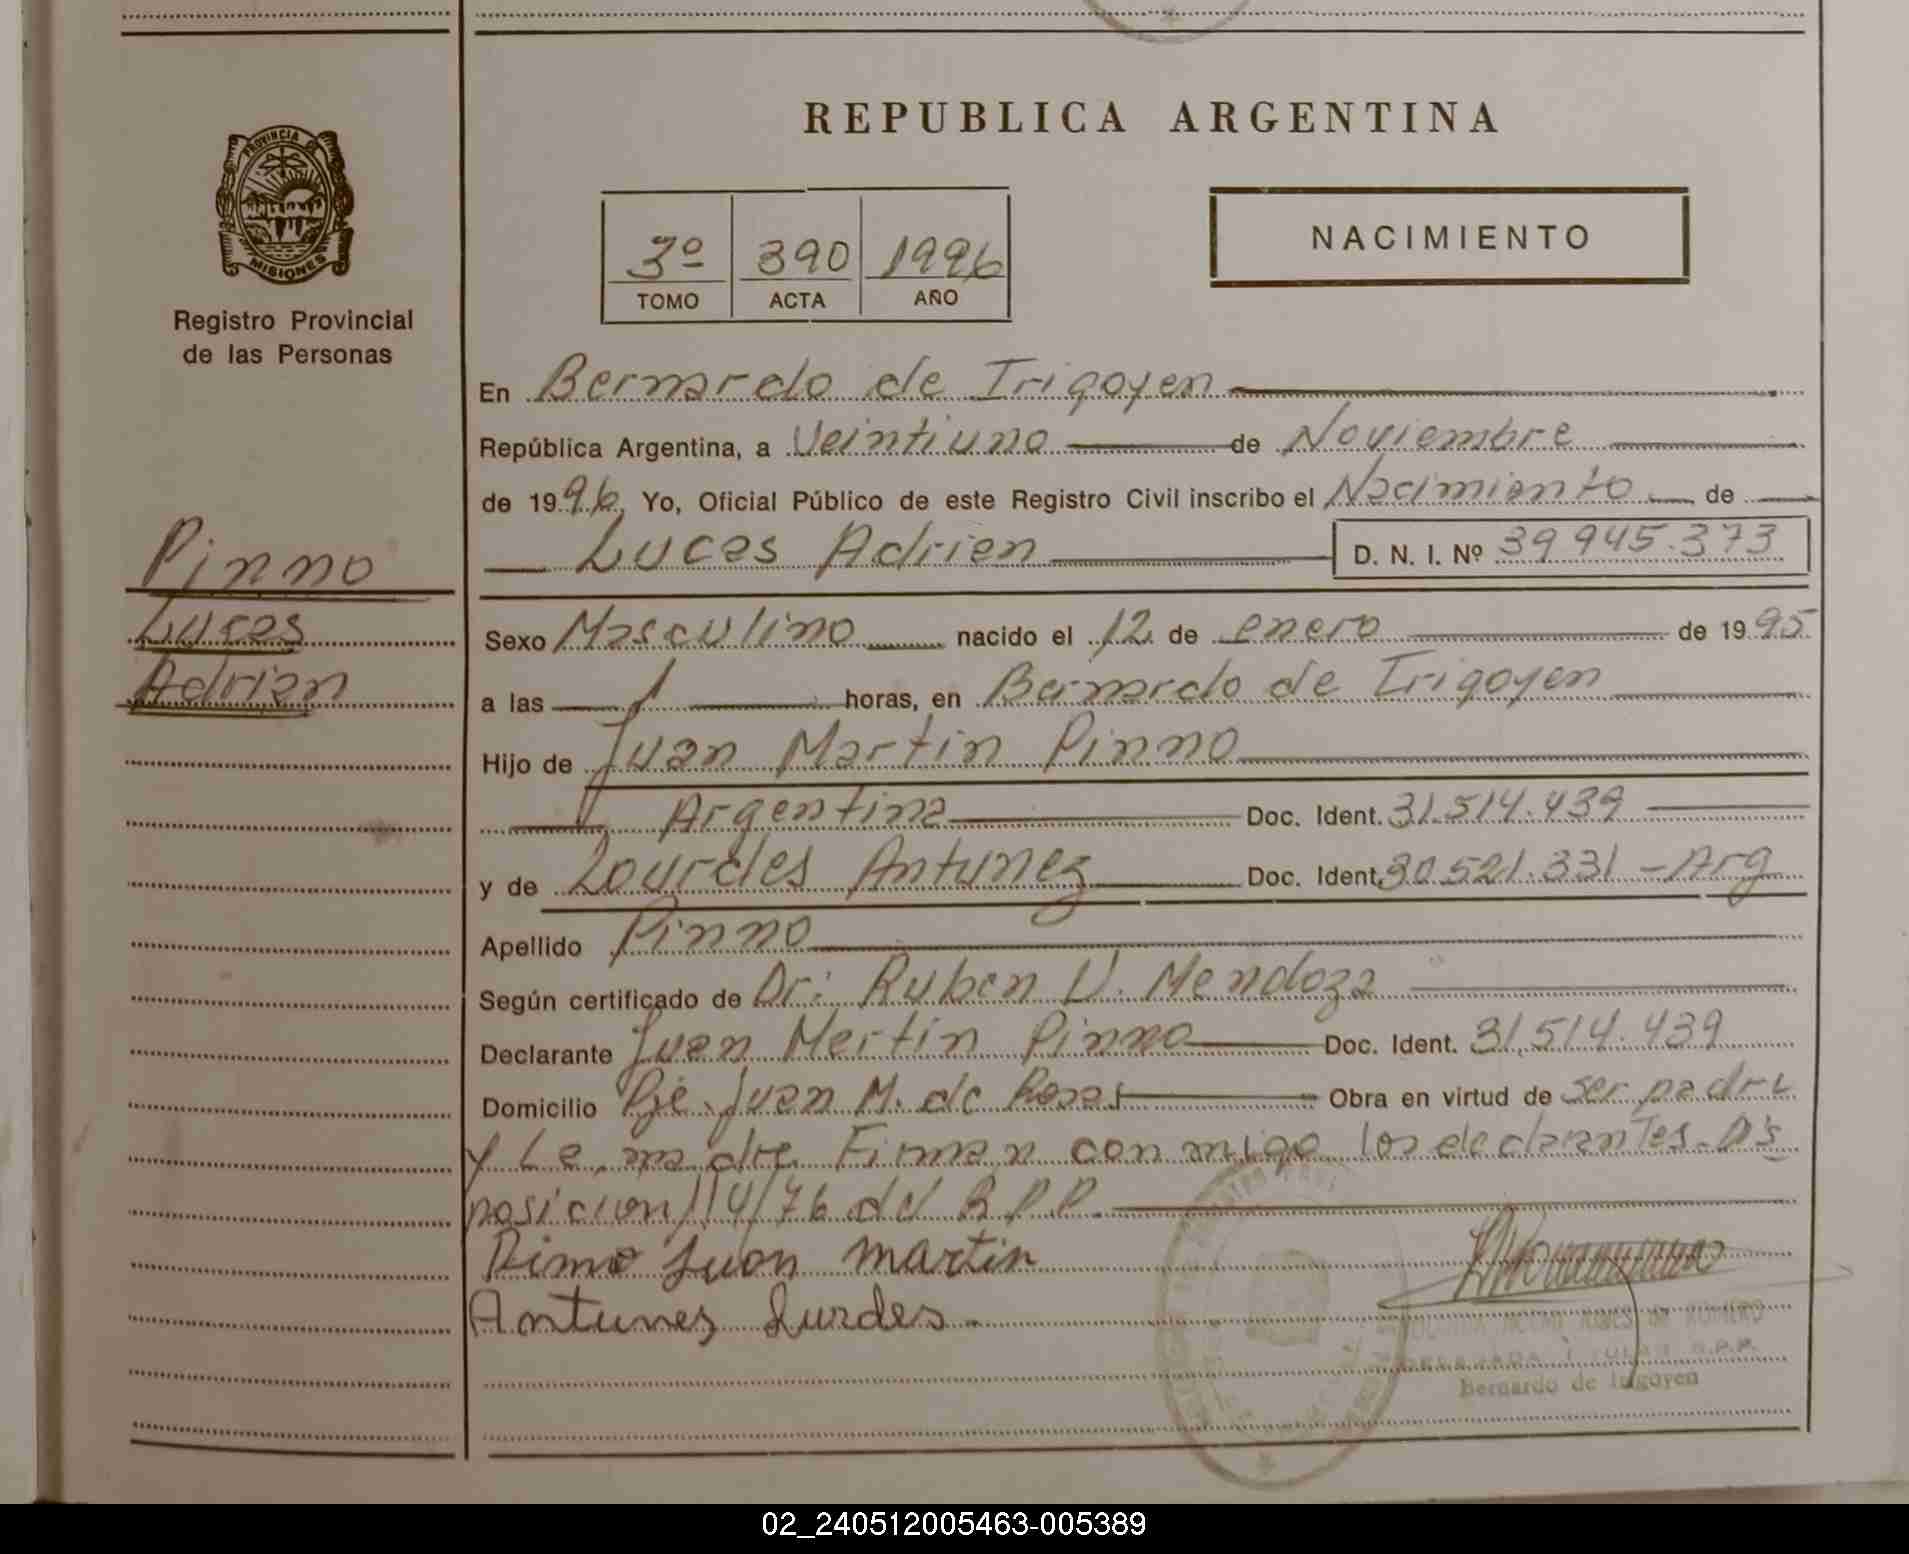 PROVINCIA DE
MISIONES
Registro Provincial
de las Personas
Pinno
Lucas
Adrian
REPUBLICA ARGENTINA
3º 390 1996
TOMO ACTA AÑO
NACIMIENTO
En Bernardo de Irigoyen
República Argentina, a Veintiuno de Noviembre
de 1996 Yo, Oficial Público de este Registro Civil inscribo el Nacimiento de
Lucas Adrian D. N. I. Nº 39.945.373
Sexo Masculino nacido el 12 de enero de 1995
a las horas, en Bernardo de Irigoyen
Hijo de Juan Martin Pinno
Argentina Doc. Ident. 31.514.439
y de Lourdes Antunez Doc. Ident. 30.521.331 - Arg
Apellido Pinno
Según certificado de Dr: Ruben V. Mendoza
Declarante Juan Martin Pinno Doc. Ident. 31.514.439
Domicilio Pje. Juan M. de Rosas Obra en virtud de ser padre
y La madre Firman conmigo los declarantes. Dis
posicion 114/76 del R.P.P.
Juan Martin
Antunes Lurdes.
DE ROMERO
R.P.P.
Bernardo de Irigoyen
02_240512005463-005389